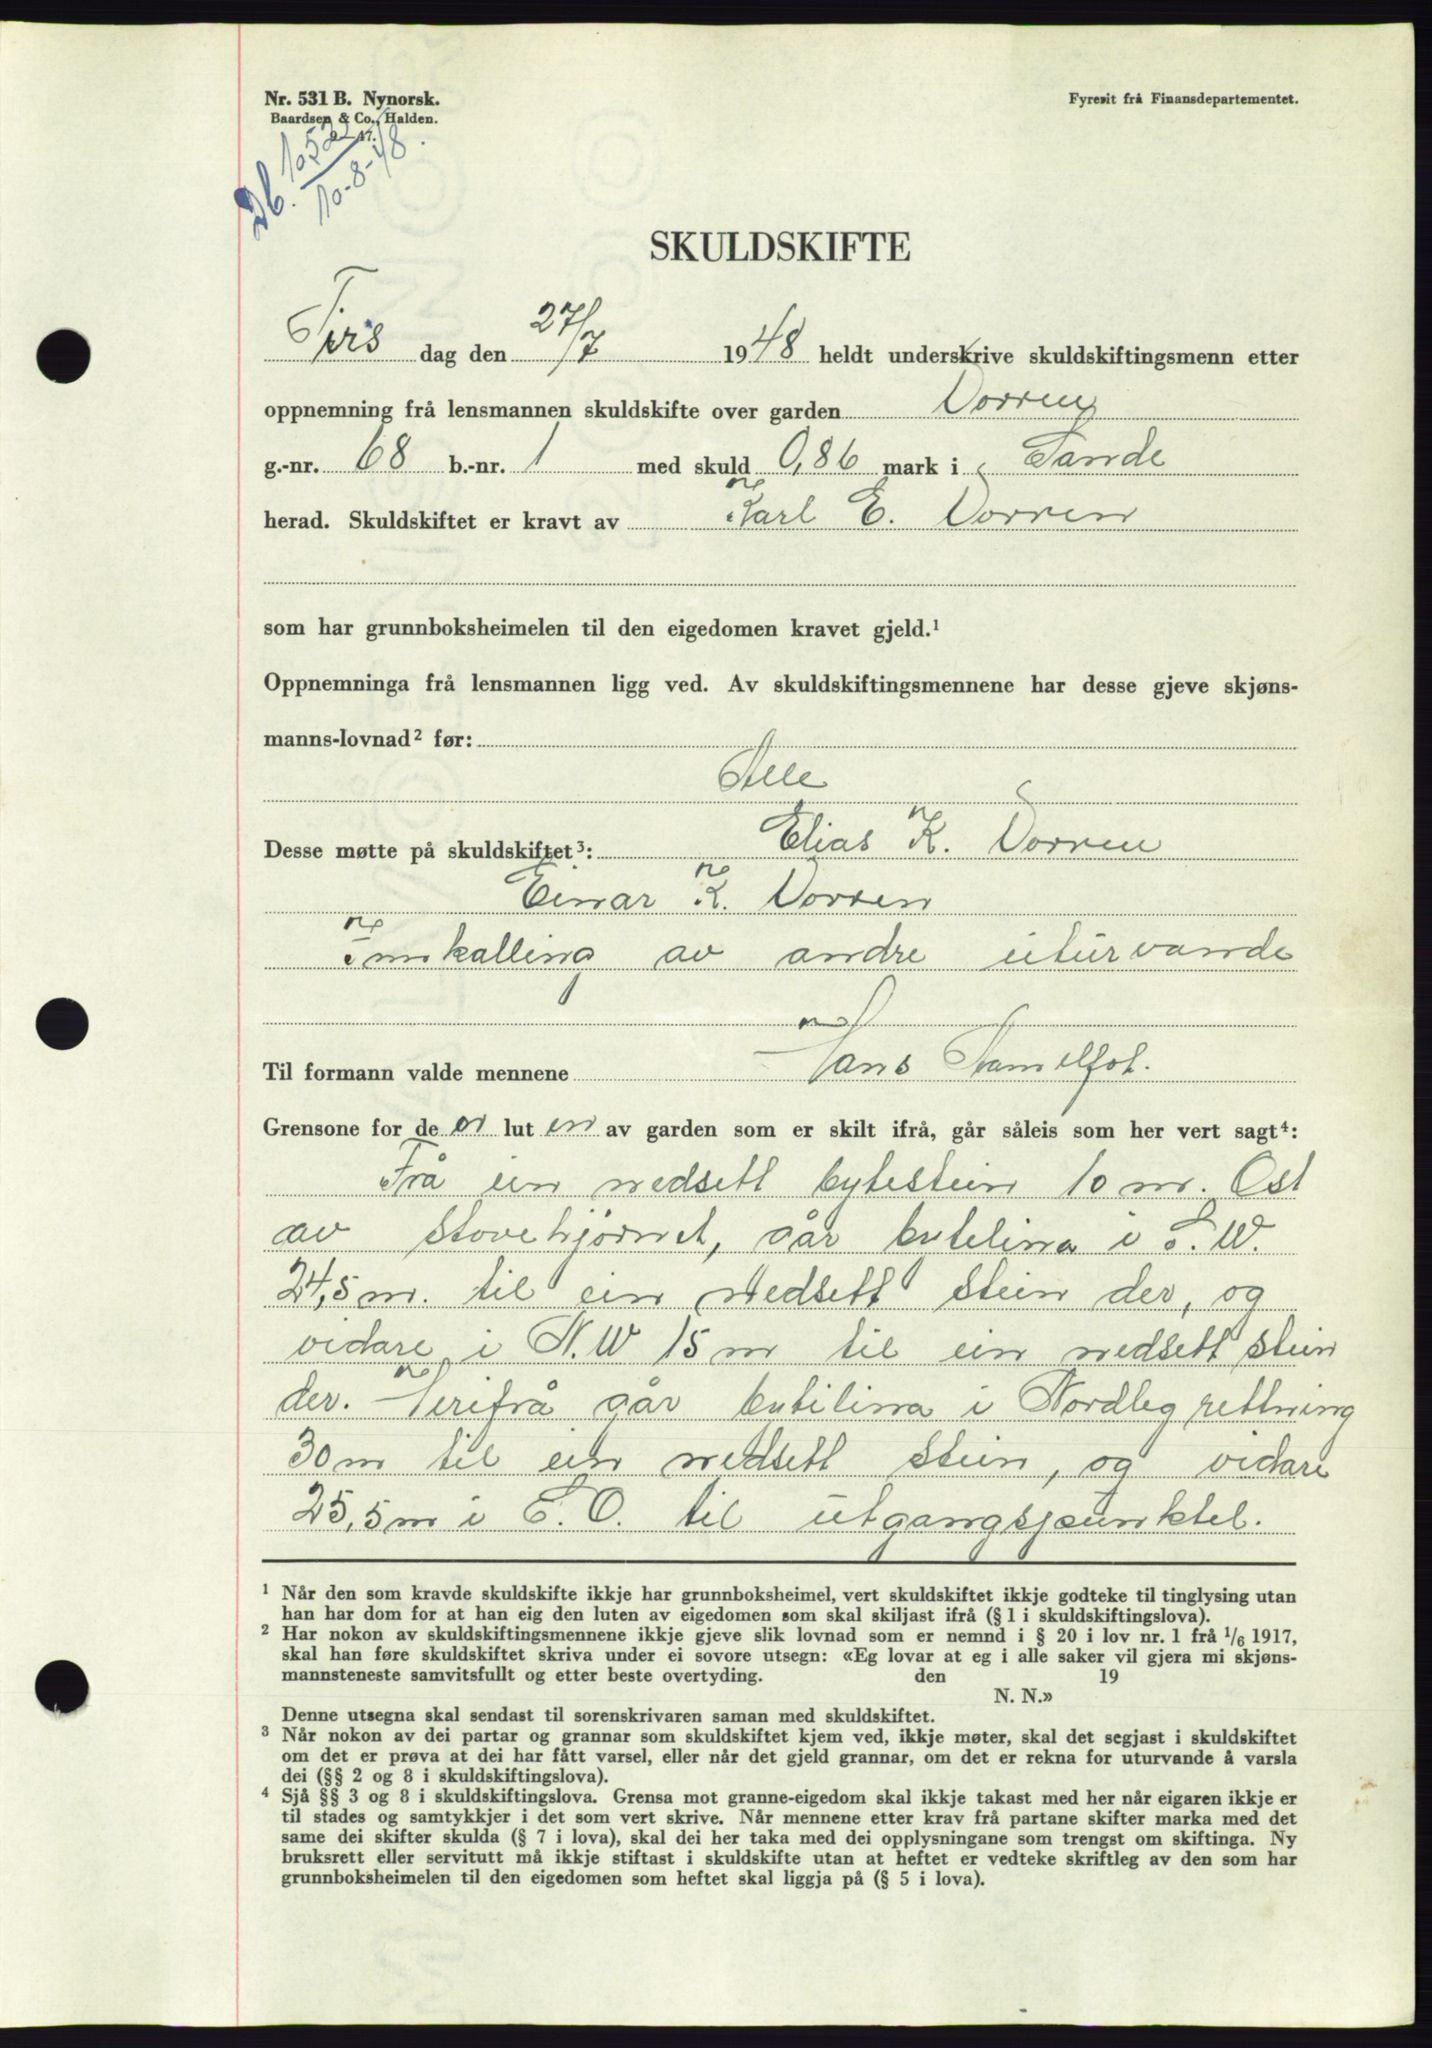 Nr. 531 B. Nynorsk.
Baardsen & Co., Halden.
9 — 47.
Fyresit frå Finansdepartementet.
Db. 1052
10-8-48.
SKULDSKIFTE
Tirs dag den 27/7 1948 heldt underskrive skuldskiftingsmenn etter
oppnemning frå lensmannen skuldskifte over garden Vorren
g.-nr. 68 b.-nr. 1 med skuld 0,86 mark i Sande
herad. Skuldskiftet er kravt av Karl E. Vorren
som har grunnboksheimelen til den eigedomen kravet gjeld.¹
Oppnemninga frå lensmannen ligg ved. Av skuldskiftingsmennene har desse gjeve skjøns-
manns-lovnad² før:
Alle
Desse møtte på skuldskiftet³: Elias K. Vorren
Einar K. Vorren
Innkalling av andre uturvande
Til formann valde mennene Hans
Grensone for de n lut en av garden som er skilt ifrå, går såleis som her vert sagt⁴:
Frå ein nedsett bytestein 10 m. Ost
av stovehjørnet, går bytelina i S.W.
24,5 m. til ein nedsett stein der, og
vidare i N.W 15 m til ein nedsett stein
der. Herifrå går bytelina i Nordleg rettning
30 m til ein nedsett stein, og vidare
25,5 m i S.O. til utgangspunktet.
¹ Når den som kravde skuldskifte ikkje har grunnboksheimel, vert skuldskiftet ikkje godteke til tinglysing utan
han har dom for at han eig den luten av eigedomen som skal skiljast ifrå (§ 1 i skuldskiftingslova).
² Har nokon av skuldskiftingsmennene ikkje gjeve slik lovnad som er nemnd i § 20 i lov nr. 1 frå 1/6 1917,
skal han føre skuldskiftet skriva under ei sovore utsegn: «Eg lovar at eg i alle saker vil gjera mi skjøns-
mannsteneste samvitsfullt og etter beste overtyding. den 19
N. N.»
Denne utsegna skal sendast til sorenskrivaren saman med skuldskiftet.
³ Når nokon av dei partar og grannar som skuldskiftet kjem ved, ikkje møter, skal det segjast i skuldskiftet
om det er prøva at dei har fått varsel, eller når det gjeld grannar, om det er rekna for uturvande å varsla
dei (§§ 2 og 8 i skuldskiftingslova).
⁴ Sjå §§ 3 og 8 i skuldskiftingslova. Grensa mot granne-eigedom skal ikkje takast med her når eigaren ikkje er
til stades og samtykkjer i det som vert skrive. Når mennene etter krav frå partane skifter marka med det
same dei skifter skulda (§ 7 i lova), skal dei her taka med dei opplysningane som trengst om skiftinga. Ny
bruksrett eller servitutt må ikkje stiftast i skuldskifte utan at heftet er vedteke skriftleg av den som har
grunnboksheimelen til den eigedomen som heftet skal liggja på (§ 5 i lova).